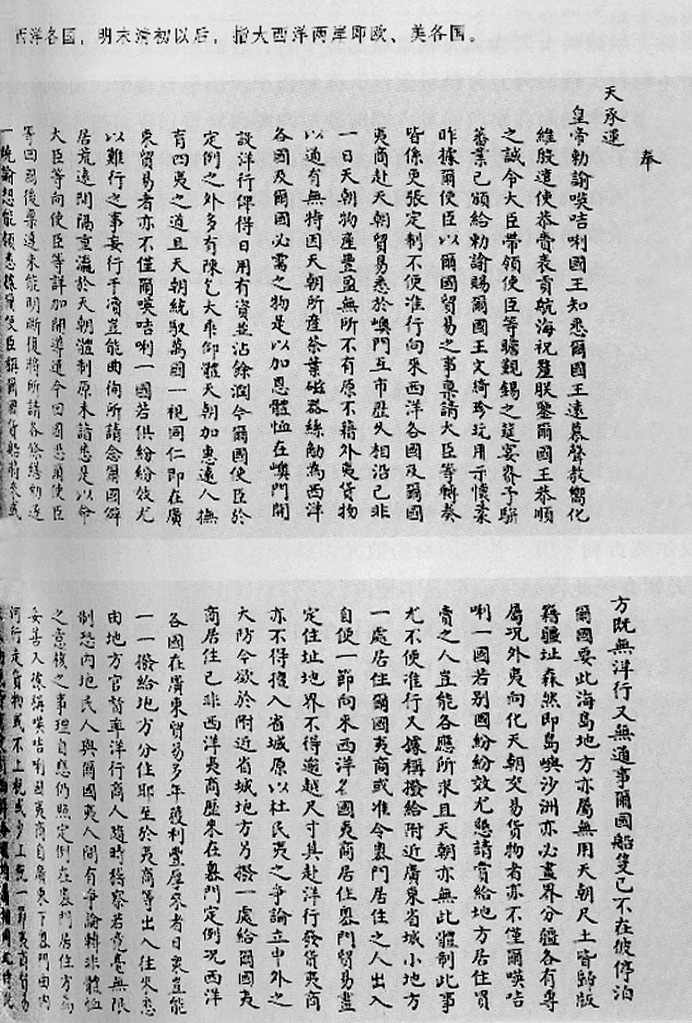 西洋各国，明末清初以后，指大西洋两岸即欧、美各国。
奉
天承運
皇帝勅諭𠸄咭唎國王知悉爾國王遠慕聲教嚮化
維殷遣使恭賫表貢航海祝釐朕鑒爾國王恭順
之誠令大臣帶領使臣等瞻覲錫之筵宴賚予駢
蕃業已頒給勅諭賜爾國王文綺珍玩用示懷柔
昨據爾使臣以爾國貿易之事稟請大臣等轉奏
皆係更張定制不便准行向來西洋各國及爾國
夷商赴天朝貿易悉於嶴門互市歷久相沿已非
一日天朝物產豐盈無所不有原不藉外夷貨物
以通有無特因天朝所產茶葉磁器絲觔為西洋
各國及爾國必需之物是以加恩體恤在嶴門開
設洋行俾得日用有資並沾餘潤今爾國使臣於
定例之外多有陳乞大乖仰體天朝加惠遠人撫
育四夷之道且天朝統馭萬國一視同仁即在廣
東貿易者亦不僅爾𠸄咭唎一國若俱紛紛效尤
以難行之事妄行干瀆豈能曲徇所請念爾國僻
居荒遠間隔重瀛於天朝體制原未諳悉是以命
大臣等向使臣等詳加開導遣令回國恐爾使臣
等回國後稟達未能明晰復將所請各條繕勅逐
一曉諭想能領悉據爾使臣稱爾國貨船將來或
方既無洋行又無通事爾國船隻已不在彼停泊
爾國要此海島地方亦屬無用天朝尺土皆歸版
籍疆址森然即島嶼沙洲亦必畫界分疆各有專
屬況外夷向化天朝交易貨物者亦不僅爾𠸄咭
唎一國若別國紛紛效尤懇請賞給地方居住買
賣之人豈能各應所求且天朝亦無此體制此事
尤不便准行又據稱撥給附近廣東省城小地方
一處居住爾國夷商或准令嶴門居住之人出入
自便一節向來西洋各國夷商居住嶴門貿易畫
定住址地界不得踰越尺寸其赴洋行發貨夷商
亦不得擅入省城原以杜民夷之爭論立中外之
大防今欲於附近省城地方另撥一處給爾國夷
商居住已非西洋夷商歷來在嶴門定例況西洋
各國在廣東貿易多年獲利豐厚來者日衆豈能
一一撥給地方分住耶至於夷商等出入往來悉
由地方官督率洋行商人隨時稽察若竟毫無限
制恐內地民人與爾國夷人間有爭論轉非體恤
之意核之事理自應仍照定例在嶴門居住方為
妥善又據稱𠸄咭唎國夷商自廣東下嶴門由內
河行走貨物或不上稅或少上稅一節夷商貿易